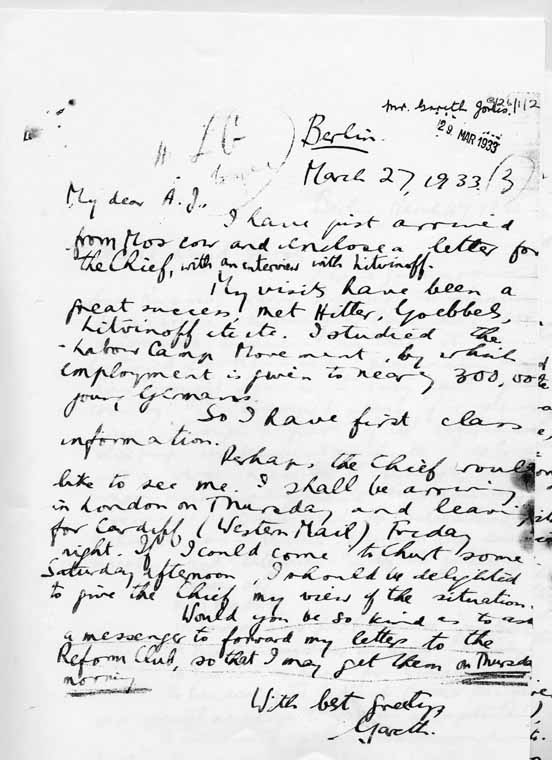 Mr. Gareth Jones
29 MAR 1933
Berlin.
March 27, 1933
My dear A. J.,
I have just arrived
from Moscow and enclose a letter for
the Chief, with an interview with Litvinoff.
My visits have been a
great success, met Hitler, Goebbels,
Litvinoff etc etc. I studied the
Labour Camp Movement, by which
employment is given to nearly 300,000
young Germans.
So I have first class
information.
Perhaps the Chief would
like to see me. I shall be arriving
in London on Thursday and leaving
for Cardiff (Western Mail) Friday
night. If I could come to Churt some
Saturday afternoon, I should be delighted
to give the Chief my view of the situation.
Would you be so kind as to ask
a messenger to forward my letters to the
Reform Club, so that I may get them on Thursday
morning
With best greetings
Gareth.